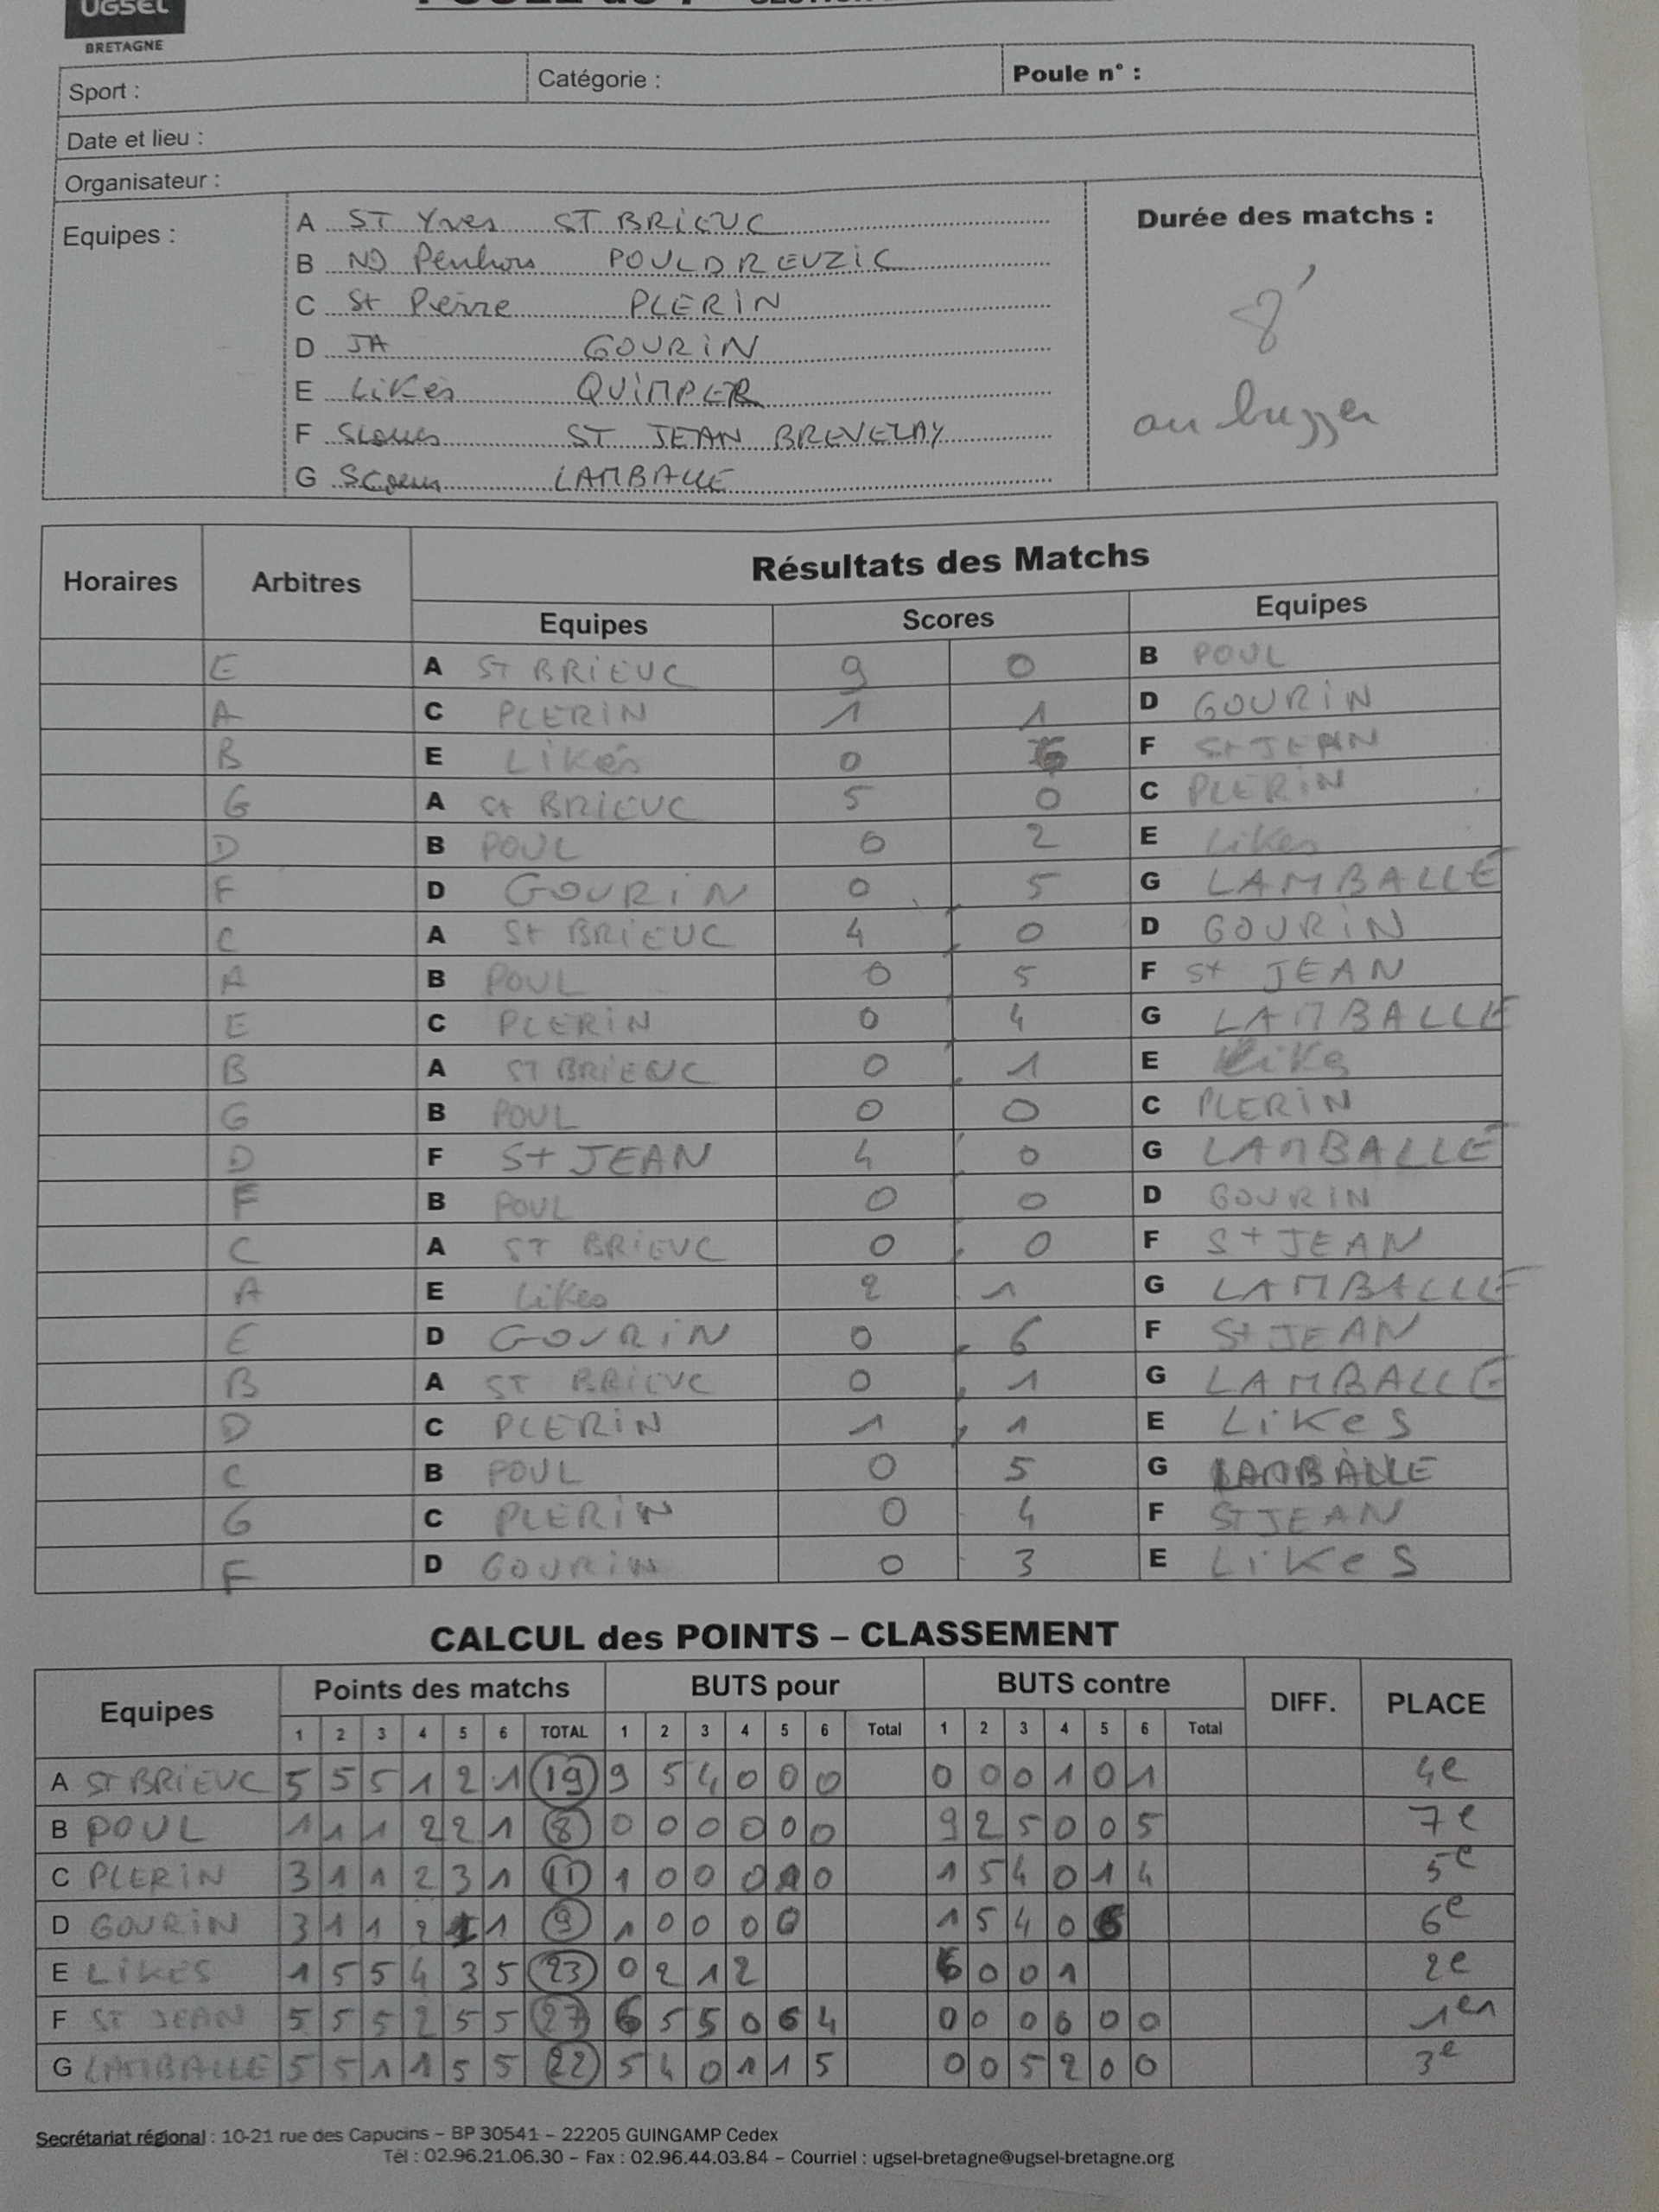 UGSEL
BRETAGNE
Sport :
Catégorie :
Poule n° :
Date et lieu :
Organisateur :
Equipes :
A ST Yves ST BRIEUC
B ND Penhors POULDREUZIC
C St Pierre PLERIN
D JA GOURIN
E Likès QUIMPER
F ST JEAN BREVELAY
G LAMBALLE
Durée des matchs :
8'
au buzzer
Horaires Arbitres Résultats des Matchs
Equipes Scores Equipes
E A ST BRIEUC 9 0 B POUL
A C PLERIN 1 1 D GOURIN
B E Likés 0 6 F St JEAN
G A St BRIEUC 5 0 C PLERIN
D B POUL 0 2 E Likes
F D GOURIN 0 5 G LAMBALLE
C A St BRIEUC 4 0 D GOURIN
A B POUL 0 5 F St JEAN
E C PLERIN 0 4 G LAMBALLE
B A ST BRIEUC 0 1 E
G B POUL 0 0 C PLERIN
D F St JEAN 4 0 G LAMBALLE
F B POUL 0 0 D GOURIN
C A ST BRIEUC 0 0 F St JEAN
A E Likes 2 1 G LAMBALLE
E D GOURIN 0 6 F St JEAN
B A ST BRIEUC 0 1 G LAMBALLE
D C PLERIN 1 1 E LIKeS
C B POUL 0 5 G LAMBALLE
G C PLERIN 0 4 F ST JEAN
F D GOURIN 0 3 E LIKeS
CALCUL des POINTS – CLASSEMENT
Equipes Points des matchs BUTS pour BUTS contre DIFF. PLACE
1 2 3 4 5 6 TOTAL 1 2 3 4 5 6 Total 1 2 3 4 5 6 Total
A ST BRIEUC 5 5 5 1 2 1 19 9 5 4 0 0 0 0 0 0 1 0 1 4e
B POUL 1 1 1 2 2 1 8 0 0 0 0 0 0 9 2 5 0 0 5 7e
C PLERIN 3 1 1 2 3 1 11 1 0 0 0 1 0 1 5 4 0 1 4 5e
D GOURIN 3 1 1 2 1 1 9 1 0 0 0 0 1 5 4 0 6 6e
E LIKES 1 5 5 4 3 5 23 0 2 1 2 6 0 0 1 2e
F ST JEAN 5 5 5 2 5 5 27 6 5 5 0 6 4 0 0 0 0 0 0 1er
G LAMBALLE 5 5 1 1 5 5 22 5 4 0 1 1 5 0 0 5 2 0 0 3e
Secrétariat régional : 10-21 rue des Capucins – BP 30541 – 22205 GUINGAMP Cedex
Tél : 02.96.21.06.30 – Fax : 02.96.44.03.84 – Courriel : ugsel-bretagne@ugsel-bretagne.org